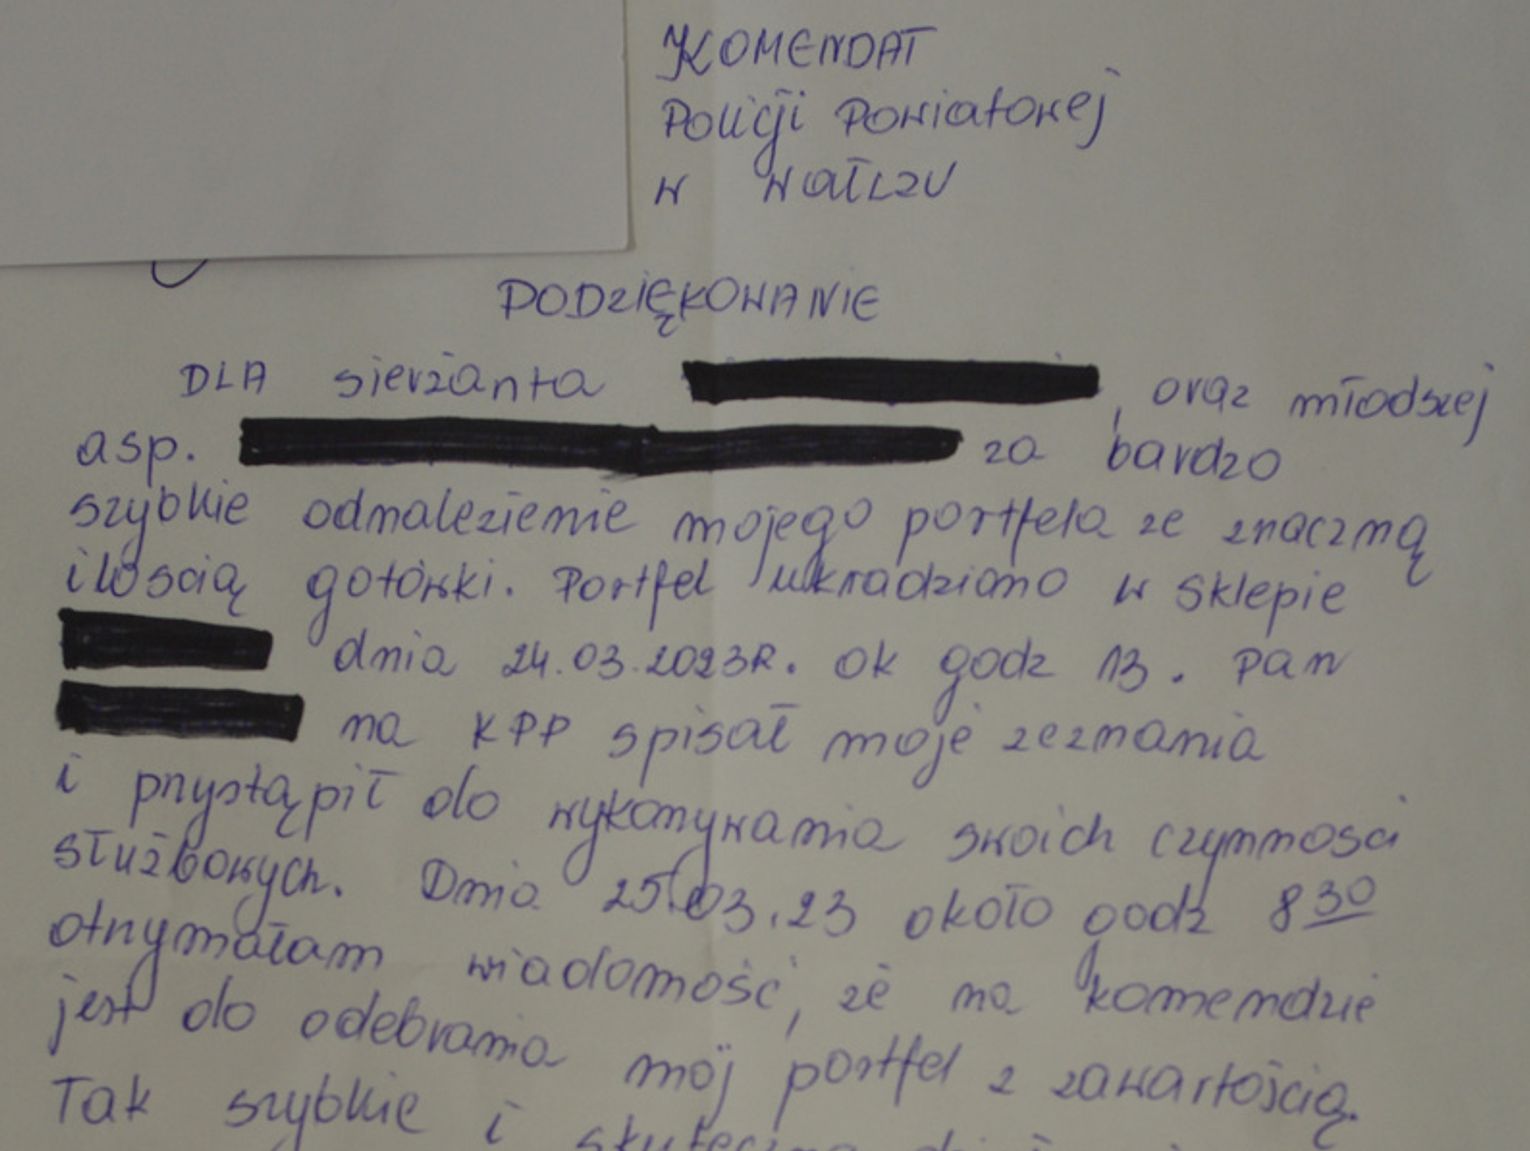 KOMENDAT
Policji Powiatowej
w Wałczu
PODZIĘKOWANIE
DLA sierżanta , oraz młodszej
asp. za bardzo
szybkie odnalezienie mojego portfela ze znaczną
ilością gotówki. Portfel ukradziono w sklepie
dnia 24.03.2023R. ok godz 13. Pan
na KPP spisał moje zeznania
i przystąpił do wykonywania swoich czynności
służbowych. Dnia 25.03.23 około godz 8 30
otrzymałam wiadomość, że na komendzie
jest do odebrania mój portfel z zawartością.
Tak szybkie i